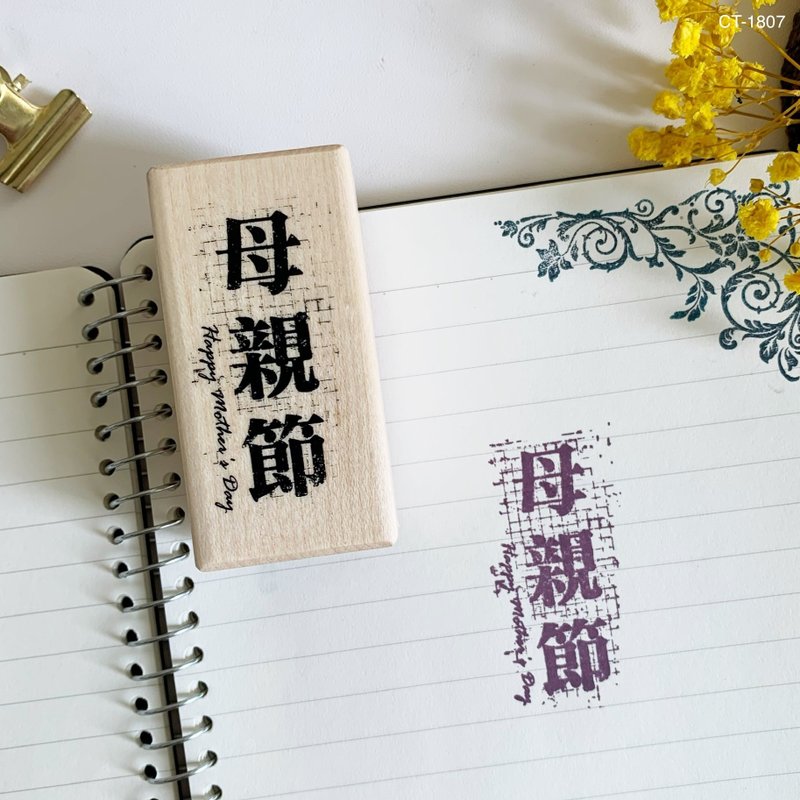 CT-1807
母親節
Happy Mother's Day
母親節
Happy Mother's Day